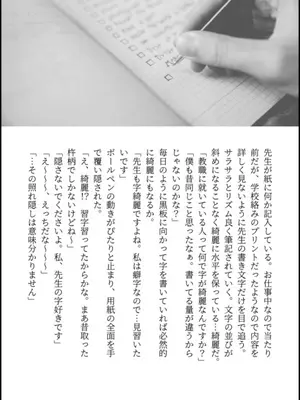 先生が紙に何か記入している。お仕事中なので当たり
前だが、学校絡みのプリントだったようなので内容を
詳しく見ないように先生の書き文字だけを目で追う。
サラサラとリズム良く筆記されていく。文字の並びが
斜めになることなく綺麗に水平を保っている…綺麗だ。
「教職に就いている人って何で字が綺麗なんですか？」
「僕も昔同じこと思ったなぁ。書いてる量が違うから
じゃないのかな？」
毎日のように黒板に向かって字を書いていれば必然的
に綺麗にもなるか。
「先生も字綺麗ですよね。私は癖字なので…見習いた
いです」
ボールペンの動きがぴたりと止まり、用紙の全面を手
で覆い隠された。
「え、綺麗!? 習字習ってたからかな。まあ昔取った
杵柄でしかないけどね〜」
「隠さないでくださいよ。私、先生の字好きです」
「え〜〜〜、えっちだな〜〜〜」
「…その照れ隠しは意味分かりません」